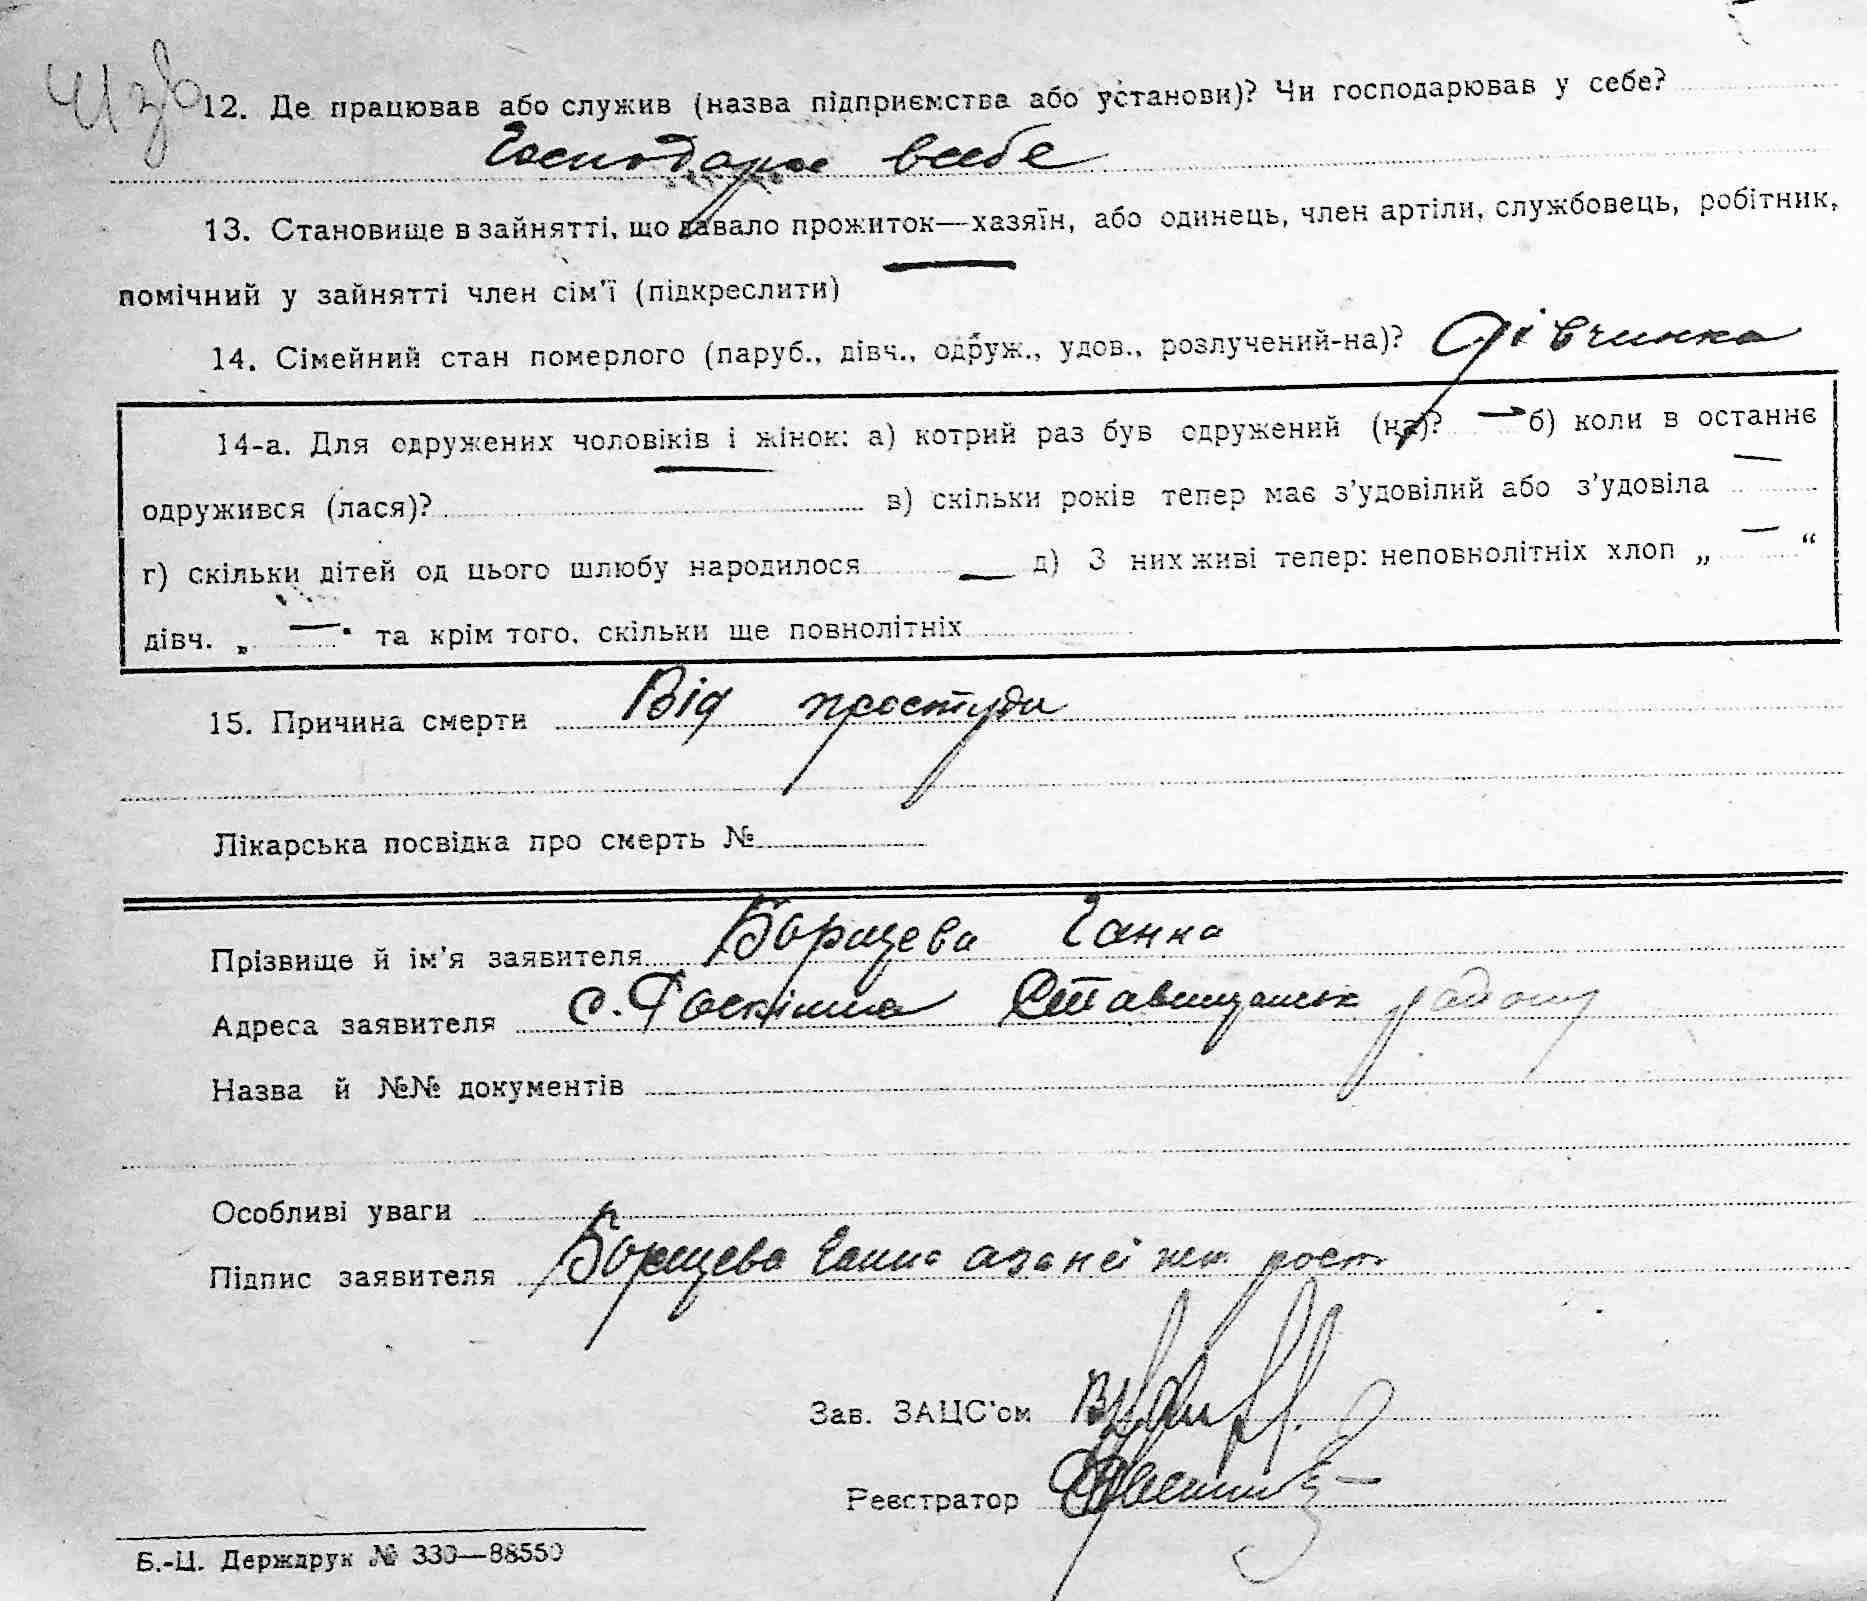 12. Де працював або служив (назва підприємства або установи)? Чи господарював у себе?
Господарює всебе
13. Становище в зайнятті, що давало прожиток—хазяїн, або одинець, член артіли, службовець, робітник,
помічний у зайнятті член сім'ї (підкреслити)
14. Сімейний стан померлого (паруб., дівч., одруж., удов., розлучений-на)? Дівчинка
14-а. Для одружених чоловіків і жінок: а) котрий раз був одружений (на)? — б) коли в останнє
одружився (лася)? в) скільки років тепер має з'удовілий або з'удовіла —
г) скільки дітей од цього шлюбу народилося — д) З них живі тепер: неповнолітніх хлоп „ — “
дівч. „ — " та крім того, скільки ще повнолітніх
15. Причина смерти Від простуди
Лікарська посвідка про смерть №
Прізвище й ім'я заявителя Борщева Ганна
Адреса заявителя с. Роскішна Ставищанськ району
Назва й №№ документів
Особливі уваги
Підпис заявителя Борщева Ганна а за неї
Зав. ЗАЦС'ом
Реєстратор
Б.-Ц. Держдрук № 330—88550